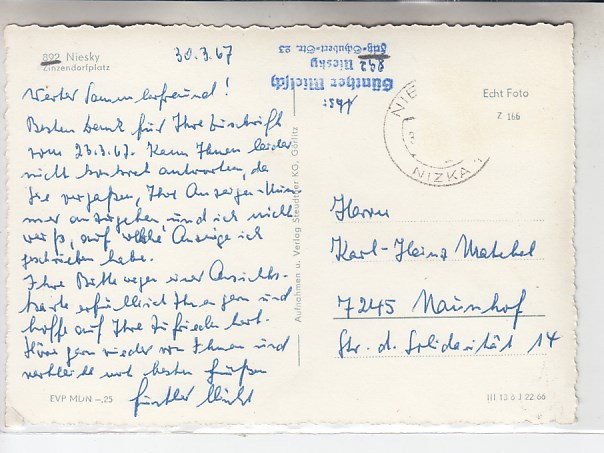 892 Niesky
Zinzendorfplatz
30.3.67
Werter Sammlerfreund!
Besten Dank für Ihre Zuschrift
vom 23.3.67. Kann Ihnen leider
nicht konkret antworten, da
Sie vergaßen, Ihre Anzeigen-Num-
mer anzugeben und ich nicht
weiß, auf welche Anzeige ich
geschrieben habe.
Ihre Bitte wegen einer Ansichts-
karte erfülle ich Ihnen gern und
hoffe auf Ihre Zufriedenheit.
Höre gern wieder von Ihnen und
verbleibe mit besten Grüßen
Günther
EVP MDN -,25
Aufnahmen u. Verlag Steudtner KG, Görlitz
Abs:
Günther
892 Niesky
Str. 23
Echt Foto
Z 166
NIE
NIZKA
Herrn
Karl-Heinz Matchel
7245 Naunhof
Str. d. Solidarität 14
III 13 6 J 22 66